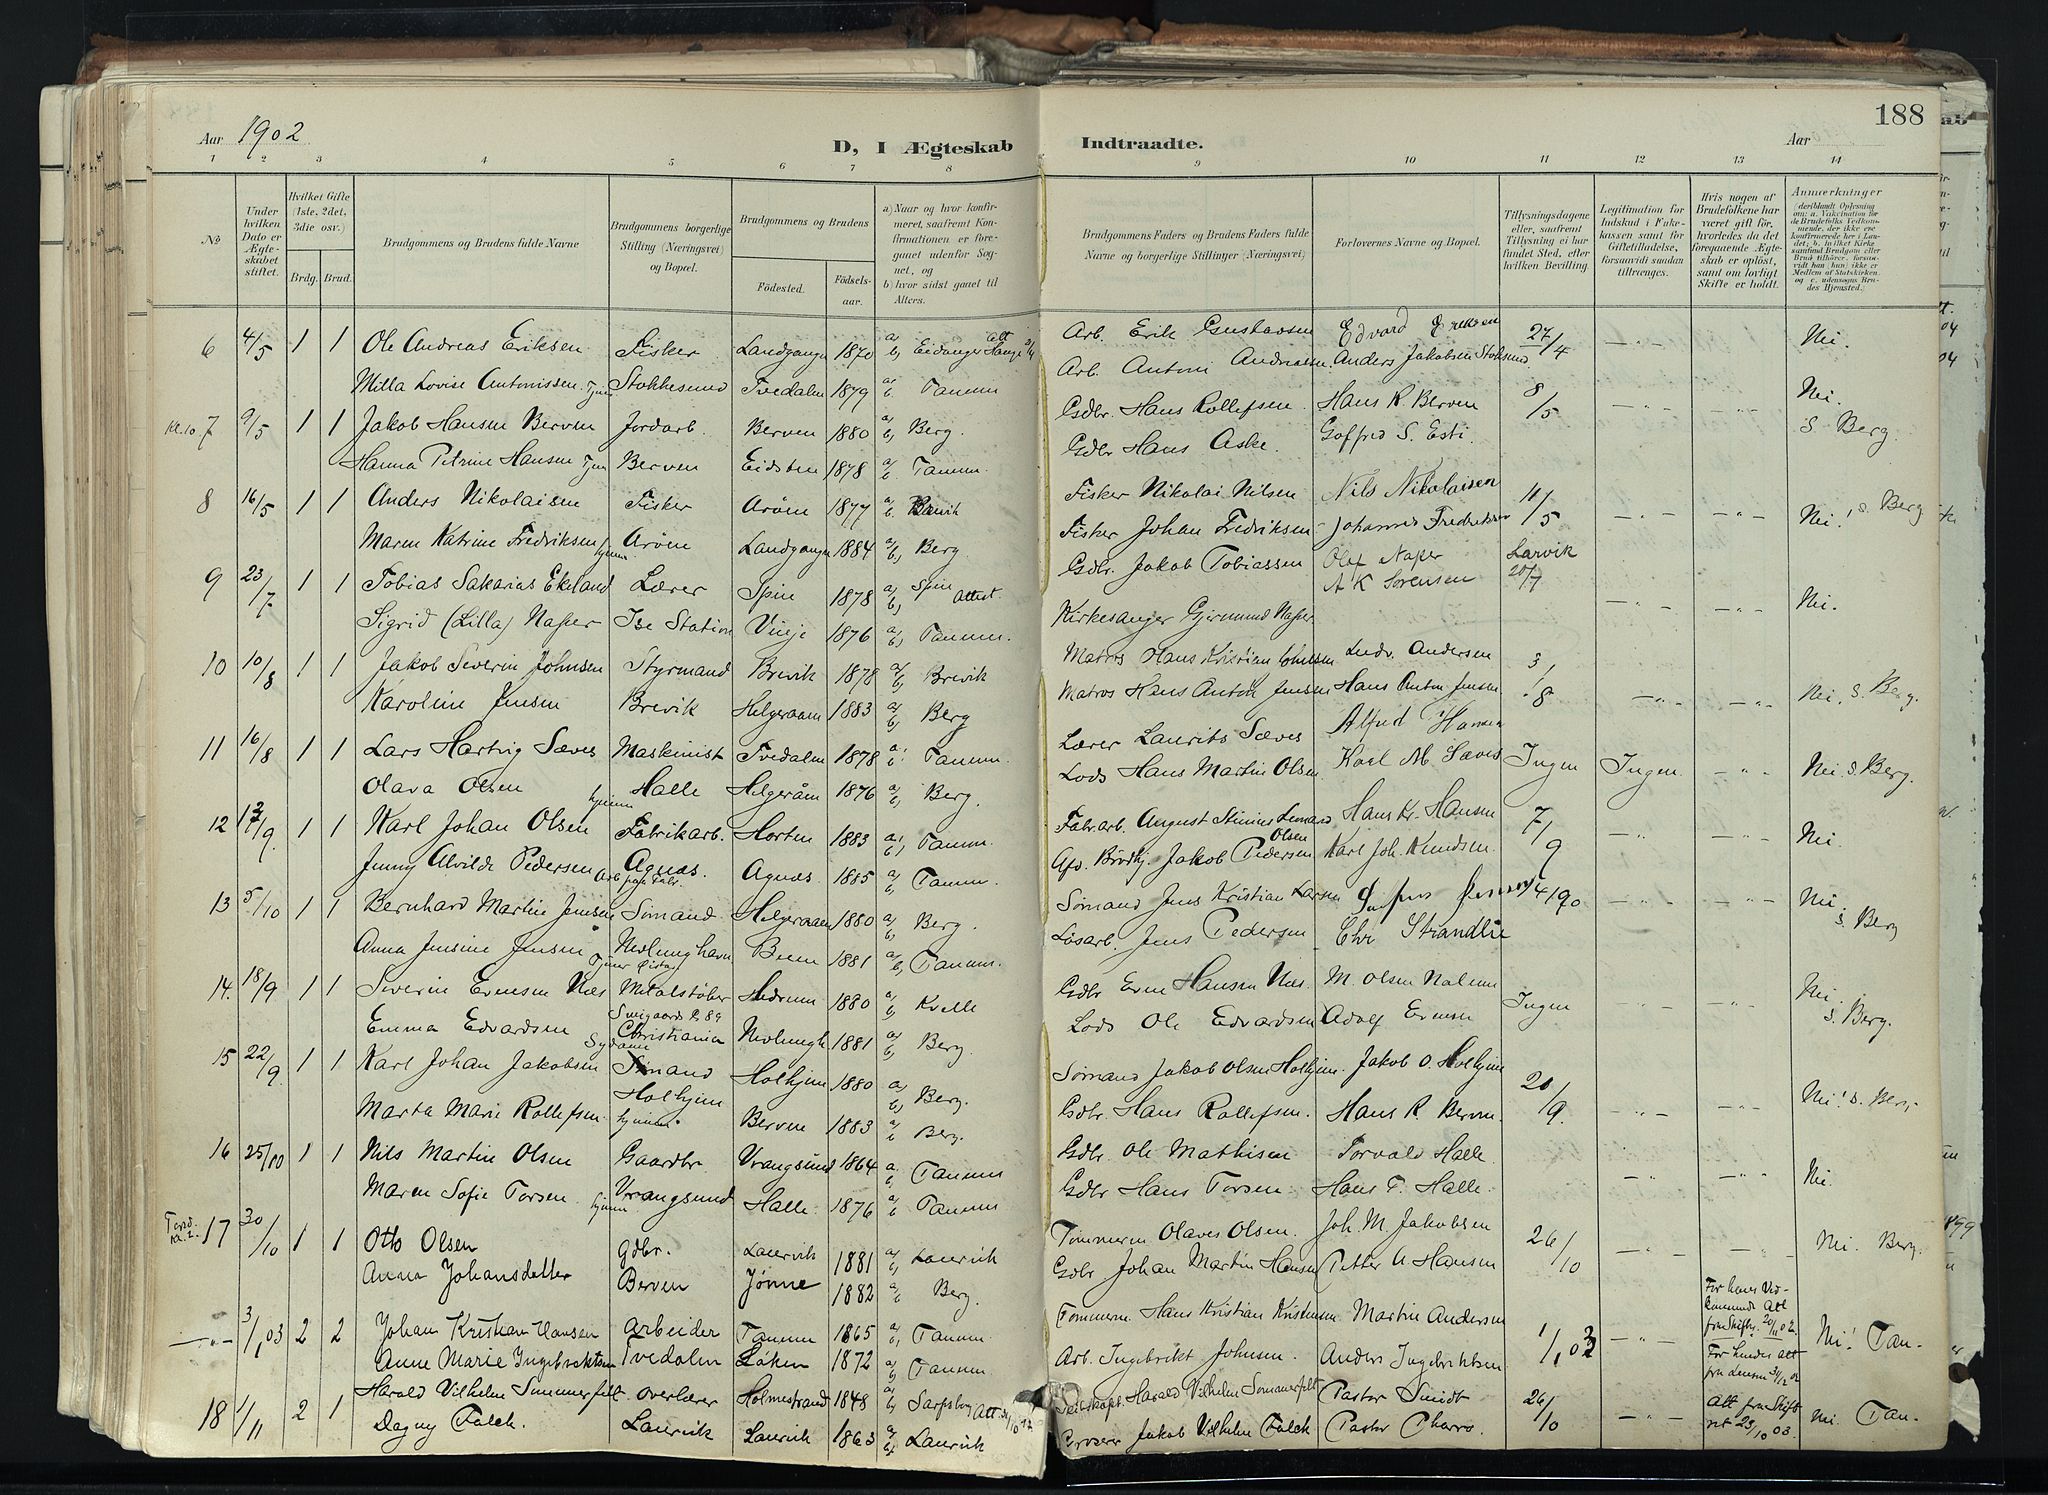 188
Aar 1902
D, I Ægteskab Indtraadte.
Aar
1 2 3 4 5 6 7 8 9 10 11 12 13 14
No
Under hvilken Dato er Ægteskabet stiftet.
Hvilket Gifte (1ste, 2det, 3die osv.)
Brdg. Brud.
Brudgommens og Brudens fulde Navne
Brudgommens borgerlige Stilling (Næringsvei) og Bopæl.
Brudgommens og Brudens
Fødested. Fødselsaar.
a) Naar og hvor konfirmeret, saafremt Konfirmationen er foregaaet udenfor Sognet, og
b) hvor sidst gaaet til Alters.
Brudgommens Faders og Brudens Faders fulde Navne og borgerlige Stillinger (Næringsvei)
Forlovernes Navne og Bopæl.
Tillysningsdagene eller, saafremt Tillysning ei har fundet Sted, efter hvilken Bevilling.
Legitimation for Indskud i Enkekassen samt for Giftetilladelse, forsaavidt saadan tiltrænges.
Hvis nogen af Brudefolkene har været gift før, hvorledes da det foregaaende Ægteskab er opløst, samt om lovligt Skifte er holdt.
Anmærkninger
6 4/5 1 1 Ole Andreas Eriksen Fisker Landgangen 1870 a) b) Eidanger Att Arb. Erik Gustavsen Edvard Eriksen 27/4 Nei.
Milla Lovise Antonissen Stokkesund Tvedalen 1879 Tanum Arb. Anton Andreasen Anders Jakobsen Stoksund
Kl. 10 7 9/5 1 1 Jakob Hansen Berven Jordarb. Berven 1880 Berg. Gdbr. Hans Rollefsen Hans R. Berven 8/5 Nei.
Hanna Petrine Hansen Berven Eidsten 1878 Tanum. Gdbr Hans Aske. S. Berg.
8 16/5 1 1 Anders Nikolaisen Fisker Arøen 1877 Fisker Nikolai Nilsen Nils Nikolaisen 11/5 Nei! s. Berg
Maren Katrine Fredriksen Arøen Landgangen 1884 Berg. Fisker Johan Fredriksen Johannes Fredriksen
9 23/7 1 1 Tobias Sakarias Ekeland Lærer Spin 1878 Spin Attest. Gdbr. Jakob Tobiassen Olaf Naper Larvik 20/7 Nei.
Sigrid (Lilla) Naper Ise Station 1876 Tanum. Kirkesanger Gjermund Naper A K Sørensen
10 10/8 1 1 Jakob Severin Johnsen Styrmand Brevik 1878 Brevik Matros Hans Kristian Johnsen Ludv. Andersen 3/8 Nei. s. Berg.
Karoline Jensen Brevik Helgeraaen 1883 Berg Matros Hans Anton Jensen Hans Anton Jensen
11 16/8 1 1 Lars Hartvig Sæves Maskinist Tvedalen 1878 Tanum. Lærer Laurits Sæves Alfred Hansen Ingen Ingen Nei s. Berg.
Olava Olsen Halle Helgeråen 1876 Berg. Lods Hans Martin Olsen Karl M Sæves
12 1 1 Karl Johan Olsen Fabrikarb. Horten 1883 Tanum. Fabr.arb. August Olsen Hans Kr. Hansen 7/9 Nei.
Jenny Alvilde Pedersen Agnæs. Agnæs 1885 Tanum. Jakob Pedersen Karl Joh. Knudsen.
13 5/10 1 1 Bernhard Martin Jensen Sømand Helgeraaen 1880 Berg. Sømand Jens Kristian Larsen Nei. s. Berg
Anna Jensine Jensen Nevlunghavn Been 1881 Tanum. Løsarb. Jens Pedersen Chr Strandlie
14. 18/9 1 1 Severin Evensen Næs Metalstøber Hedrum 1880 Kvelle Gdbr Even Hansen Næs. M. Olsen Nalum Ingen Nei. s. Berg.
Emma Edvardsen Christiania Nevlungh. 1881 Berg. Lods Ole Edvardsen Adolf Evensen
15 22/9 1 1 Karl Johan Jakobsen Sømand Holhjem 1880 Berg. Sømand Jakob Olsen Holhjem. Jakob O. Holhjem 20/9. Nei! s. Berg
Marta Marie Rollefsen Holhjem Berven 1883 Berg. Gdbr. Hans Rollefsen. Hans R. Berven.
16 25/10 1 1 Nils Martin Olsen Gaardbr Vrangsund 1864 Tanum Gdbr. Ole Mathisen Torvald Halle. Nei.
Maren Sofie Torsen Vrangsund Halle. 1876 Tanum Gdbr Hans Torsen. Hans T. Halle.
17 30/10 1 1 Otto Olsen Gdbr. Laurvik 1881 Laurvik Tømmerm Olaves Olsen. Joh. M. Jakobsen 26/10 Nei. Berg.
Anna Johansdatter Berven Jønne 1882 Berg. Gdbr Johan Martin Hansen Petter A Hansen
3/1 03 2 2 Johan Kristian Hansen Arbeider Tanum 1865 Tanum. Tømmerm. Hans Kristian Martin Andersen 1/1 03 Nei! Tan-
Anne Marie Ingebrektsen Tvedalen Løken 1872 Tanum Arb. Ingebrikt Johnsen. Anders Ingebriktsen
18 1/11 2 1 Harald Vilhelm Sommerfelt overlærer Holmestrand 1848 Sarpsborg Att. Harald Vilhelm Sommerfelt Pastor Smidt 26/10 Att fra Skifteret 23/10 03. Nei. Tan-
Dagny Falck. Laurvik Laurvik 1863 Laurvik Grosserer Jakob Vilhelm Falck Pastor